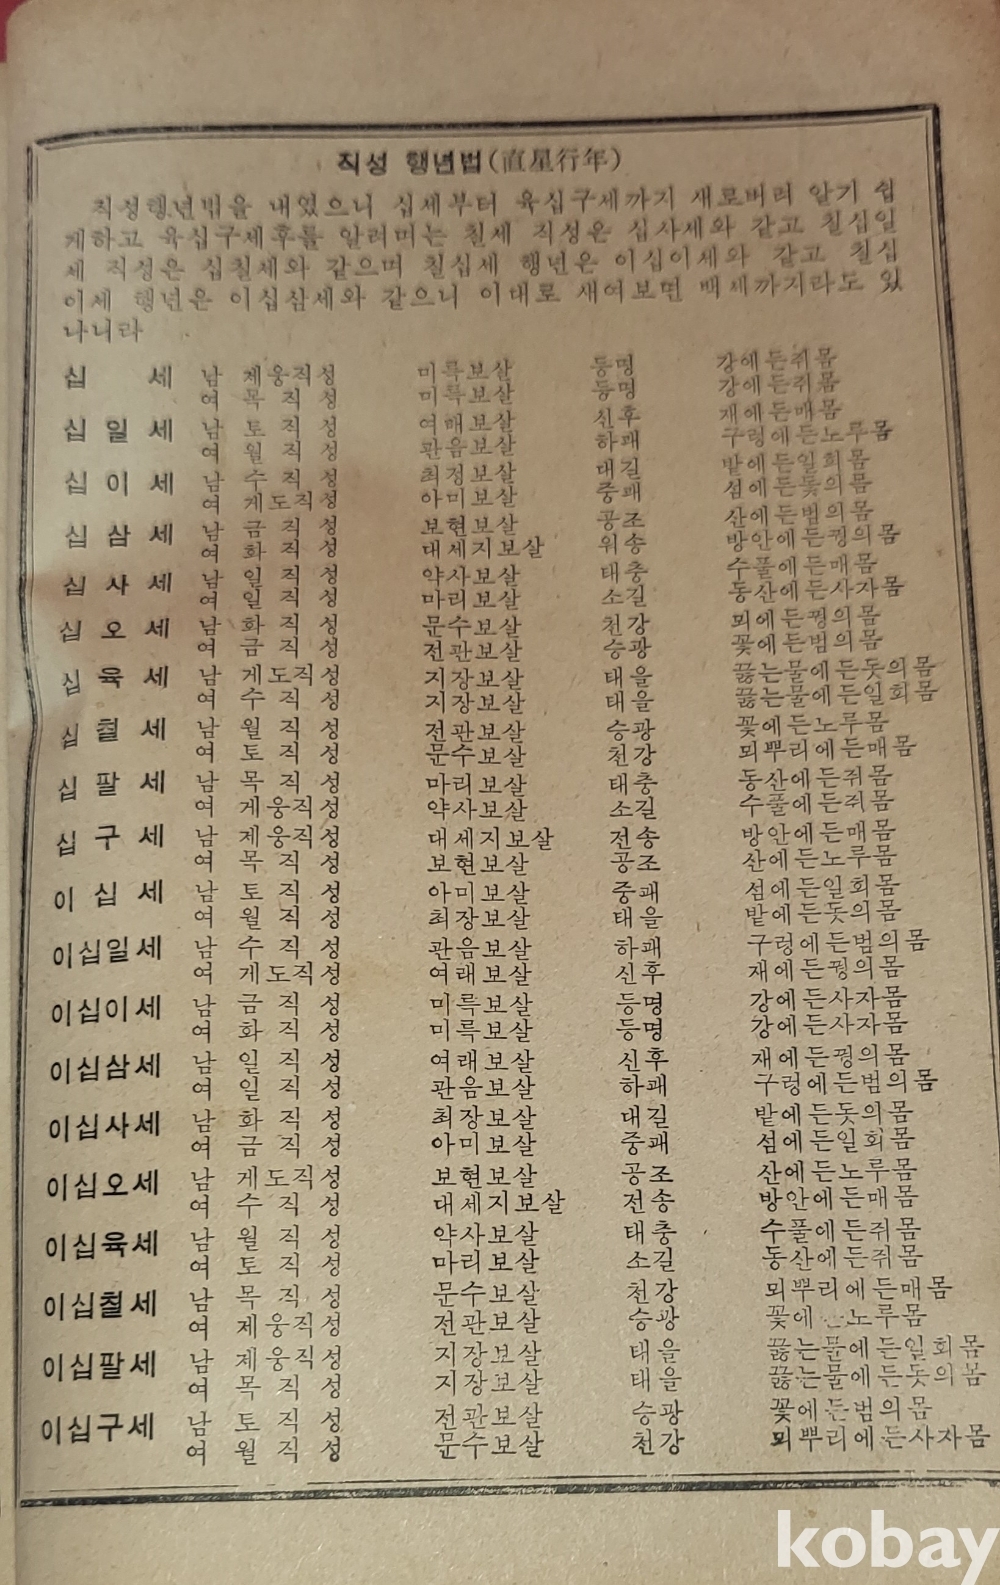 직성 행년법(直星行年)
직성행년법을 내였으니 십세부터 육십구세까지 새로버려 알기 쉽
게하고 육십구세후를 알려며는 칠세 직성은 십사세와 같고 칠십일
세 직성은 십칠세와 같으며 칠십세 행년은 이십이세와 같고 칠십
이세 행년은 이십삼세와 같으니 이대로 새여보면 백세까지라도 있
나니라
십 세 남 제웅직성 미륵보살 등명 강에든쥐몸
여 목직성 미륵보살 등명 강에든쥐몸
십일세 남 토직성 여래보살 신후 재에든매몸
여 월직성 관음보살 하괘 구렁에든노루몸
십이세 남 수직성 최정보살 대길 밭에든일희몸
여 게도직성 아미보살 중괘 섬에든돛의몸
십삼세 남 금직성 보현보살 공조 산에든범의몸
여 화직성 대세지보살 위송 방안에든꿩의몸
십사세 남 일직성 약사보살 태충 수풀에든매몸
여 일직성 마리보살 소길 동산에든사자몸
십오세 남 화직성 문수보살 천강 뫼에든꿩의몸
여 금직성 전관보살 승광 꽃에든범의몸
십육세 남 게도직성 지장보살 태을 끓는물에든돗의몸
여 수직성 지장보살 태을 끓는물에든일희몸
십칠세 남 월직성 전관보살 승광 꽃에든노루몸
여 토직성 문수보살 천강 뫼뿌리에든매몸
십팔세 남 목직성 마리보살 태충 동산에든쥐몸
여 게웅직성 약사보살 소길 수풀에든쥐몸
십구세 남 제웅직성 대세지보살 전송 방안에든매몸
여 목직성 보현보살 공조 산에든노루몸
이십세 남 토직성 아미보살 중괘 섬에든일희몸
여 월직성 최장보살 태을 밭에든돗의몸
이십일세 남 수직성 관음보살 하괘 구렁에든범의몸
여 게도직성 여래보살 신후 재에든꿩의몸
이십이세 남 금직성 미륵보살 등명 강에든사자몸
여 화직성 미륵보살 등명 강에든사자몸
이십삼세 남 일직성 여래보살 신후 재에든꿩의몸
여 일직성 관음보살 하괘 구렁에든범의몸
이십사세 남 화직성 최장보살 대길 밭에든돗의몸
여 금직성 아미보살 중괘 섬에든일희몸
이십오세 남 게도직성 보현보살 공조 산에든노루몸
여 수직성 대세지보살 전송 방안에든매몸
이십육세 남 월직성 약사보살 태충 수풀에든쥐몸
여 토직성 마리보살 소길 동산에든쥐몸
이십칠세 남 목직성 문수보살 천강 뫼뿌리에든매몸
여 제웅직성 전관보살 승광 꽃에 노루몸
이십팔세 남 제웅직성 지장보살 태을 끓는물에든일희몸
여 목직성 지장보살 태을 끓는물에든돗의몸
이십구세 남 토직성 전관보살 승광 꽃에든범의몸
여 월직성 문수보살 천강 뫼뿌리에든사자몸
kobay